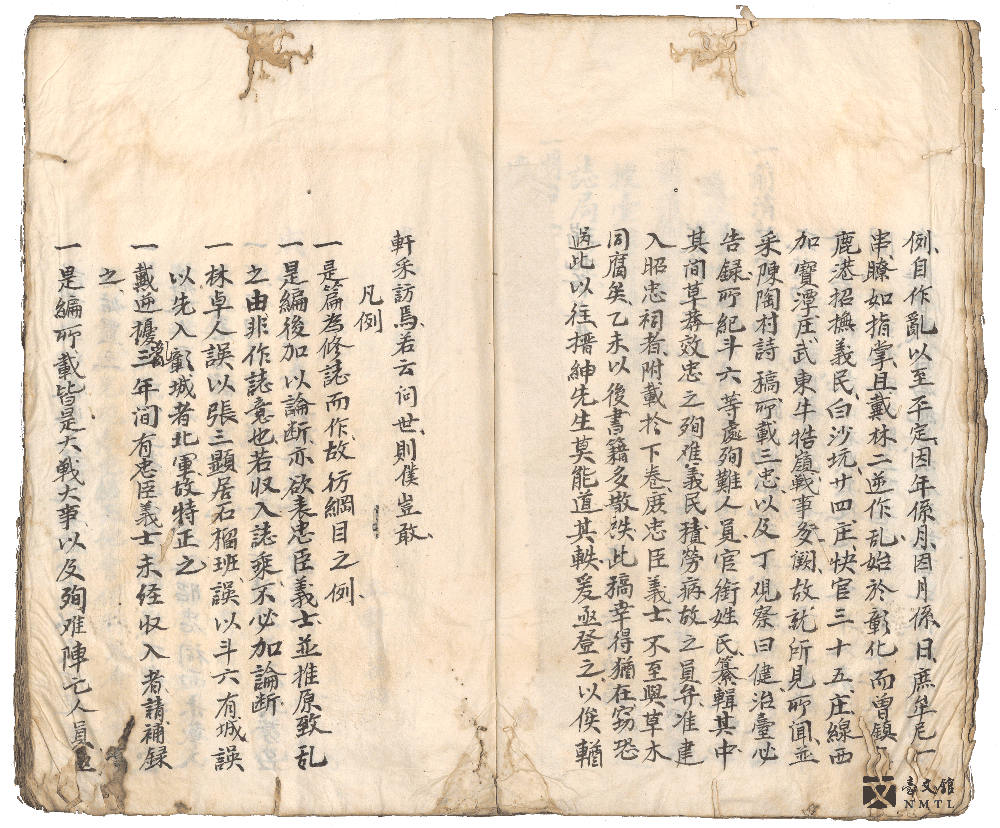 例自作亂以至平定因年係月因月係日庶單尼一
串瞭如指掌且戴林二逆作乱始於彰化而曾鎮
鹿港招撫義民白沙坑廿四庄快官三十五庄線西
加寶潭庄武東牛牯嶺戰事多闕故就所見所聞並
采陳陶村詩稿所載三忠以及丁觀察曰健治臺必
告録所紀斗六等處殉難人員官銜姓氏纂輯其中
其间草莽效忠之殉难義民積勞病故之員弁准建
入昭忠祠者附載於下卷庶忠臣義士不至與草木
同腐矣乙未以後書籍多散帙此稿幸得猶在窃恐
過此以往搢紳先生莫能道其軼爰亟登之以俟輶
軒采訪焉若云问世則僕豈敢
凡例
一是篇為修誌而作故彷綱目之例
一是編後加以論断亦欲表忠臣義士並推原致乱
之由非作誌意也若収入誌乘不必加論断
一林卓人誤以張三顯居石榴班誤以斗六有城誤
以先入彰城者北軍故特正之
一戴逆擾亂三年间有忠臣義士未经収入者請補録
之
一是編所載皆是大戦大事以及殉难陣亡人員並
臺文館
NMTL